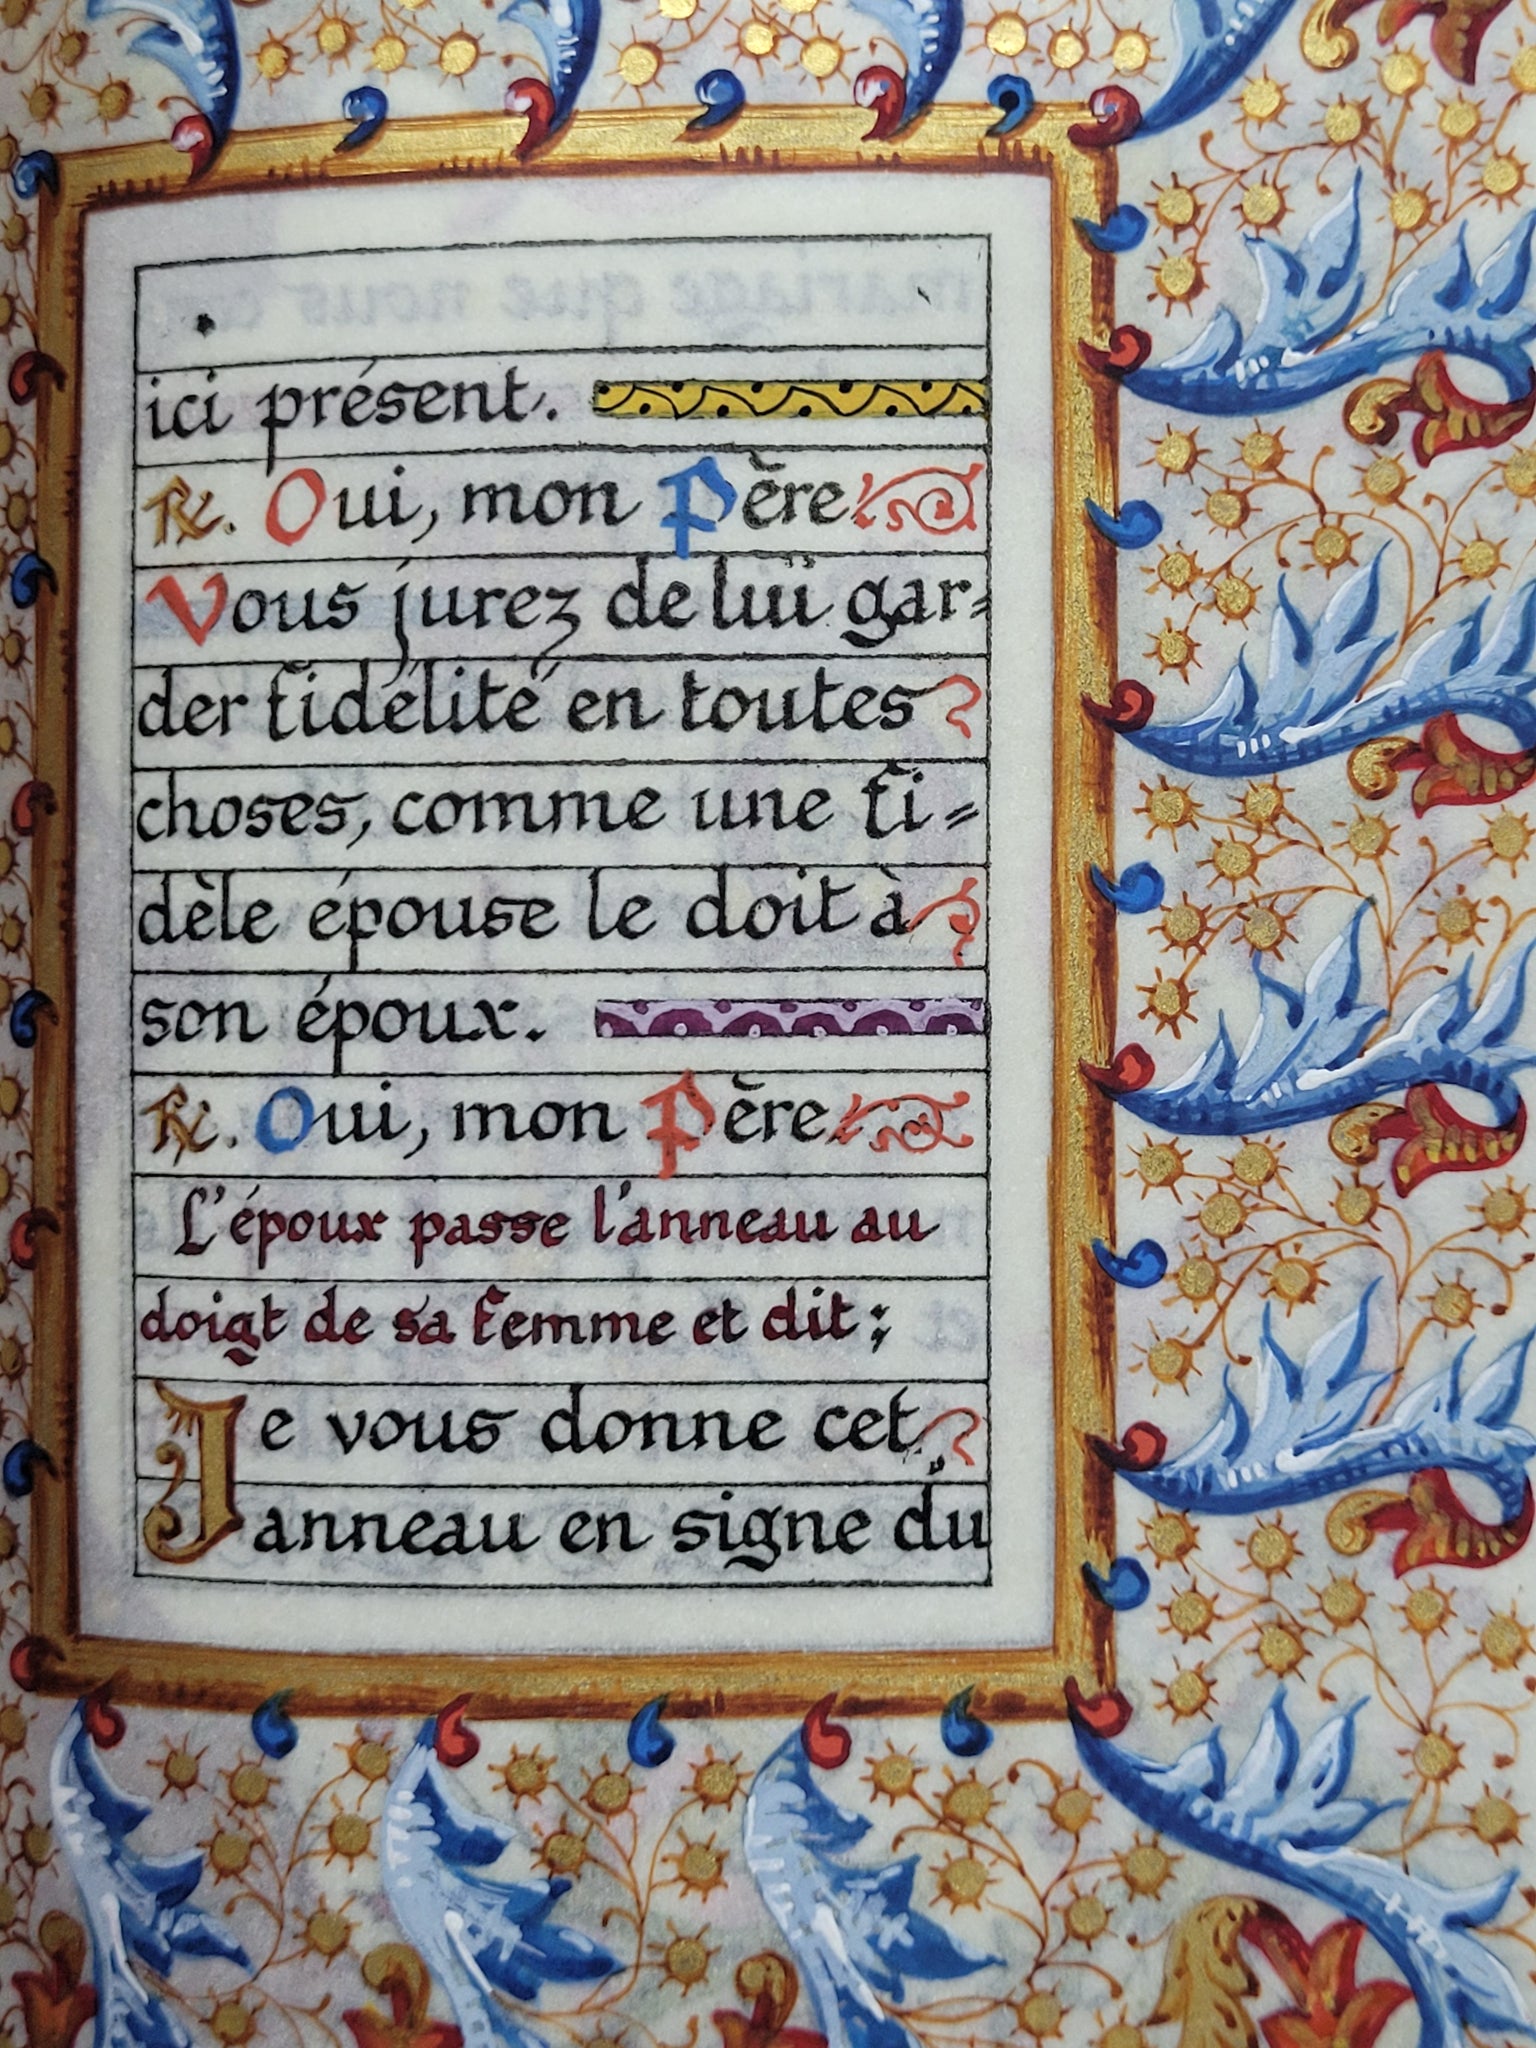 ici présent.
℟. Oui, mon Père
Vous jurez de luï gar=
der fidélité en toutes
choses, comme une fi=
dèle épouse le doit à
son époux.
℟. Oui, mon Père
L'époux passe l'anneau au
doigt de sa femme et dit:
Je vous donne cet
anneau en signe du